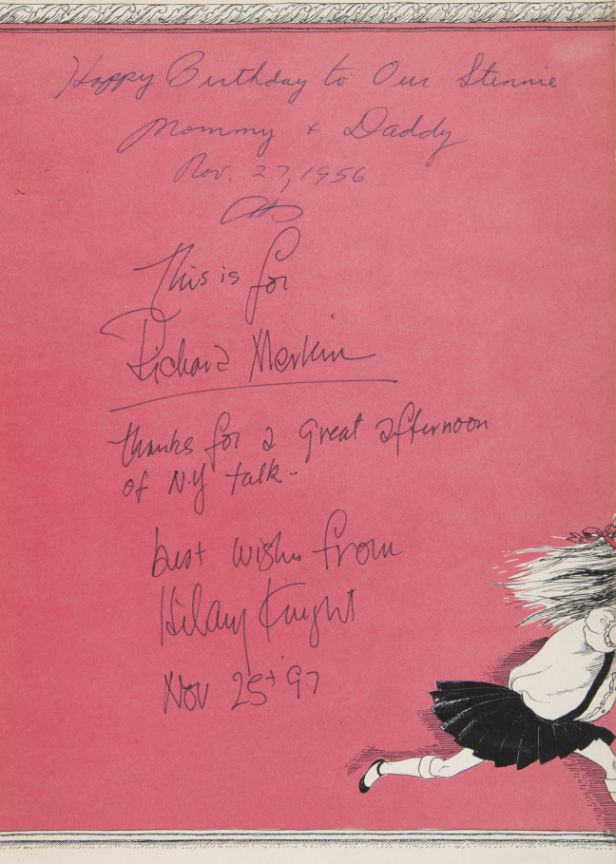 Happy Birthday to Our Stennie
Mommy + Daddy
Nov. 27, 1956
This is for
Richard Merkin
thanks for a great afternoon
of N.Y talk -
best wishes from
Hilary Knight
Nov 25t 97